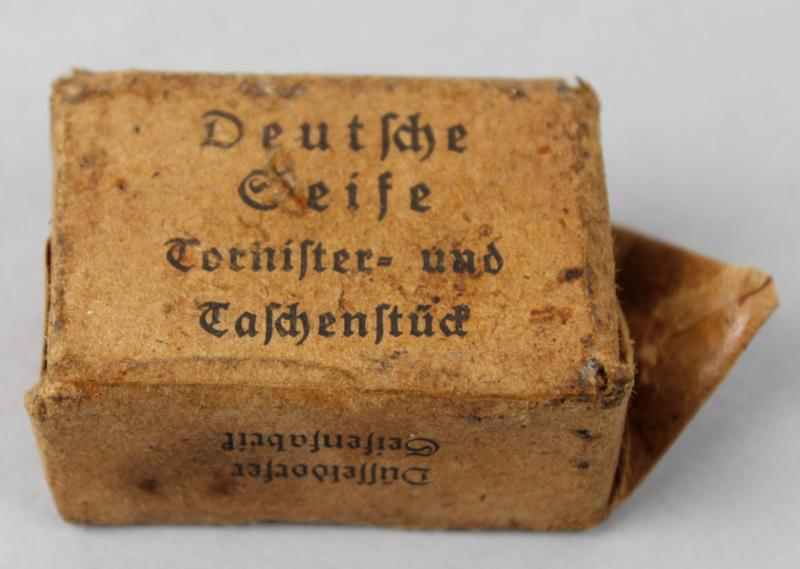 Deutſche
Seife
Torniſter- und
Taſchenſtück
Düſſeldorfer
Seifenfabrik